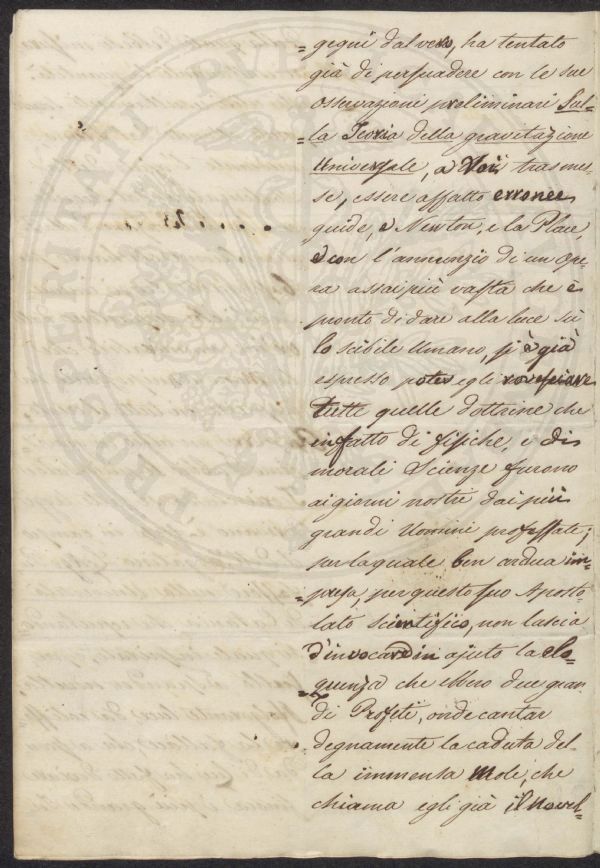 =gegni dal vero, ha tentato
già di persuadere con le sue
osservazioni preliminari Sul=
=la Teoria della gravitazione
Universale, a Voi trasmes-
se, essere affatto erronee
guide, e Newton, e la Place,
e con l'annunzio di un ope-
ra assai più vasta che è
pronto di dare alla luce su
lo scibile Umano, si è già
espresso poter egli rovesciare
tutte quelle dottrine che
in fatto di fisiche, e di
morali Scienze furono
ai giorni nostri dai più
grandi Uomini professate;
per la quale ben ardua im-
=presa, per questo suo Aposto-
lato scientifico, non lascia
d'invocar in ajuto la elo=
=quenza che ebbero due gran-
di Profeti, onde cantar
degnamente la caduta del-
la immensa mole, che
chiama egli già il Novel=
PROSPERITATI PVB